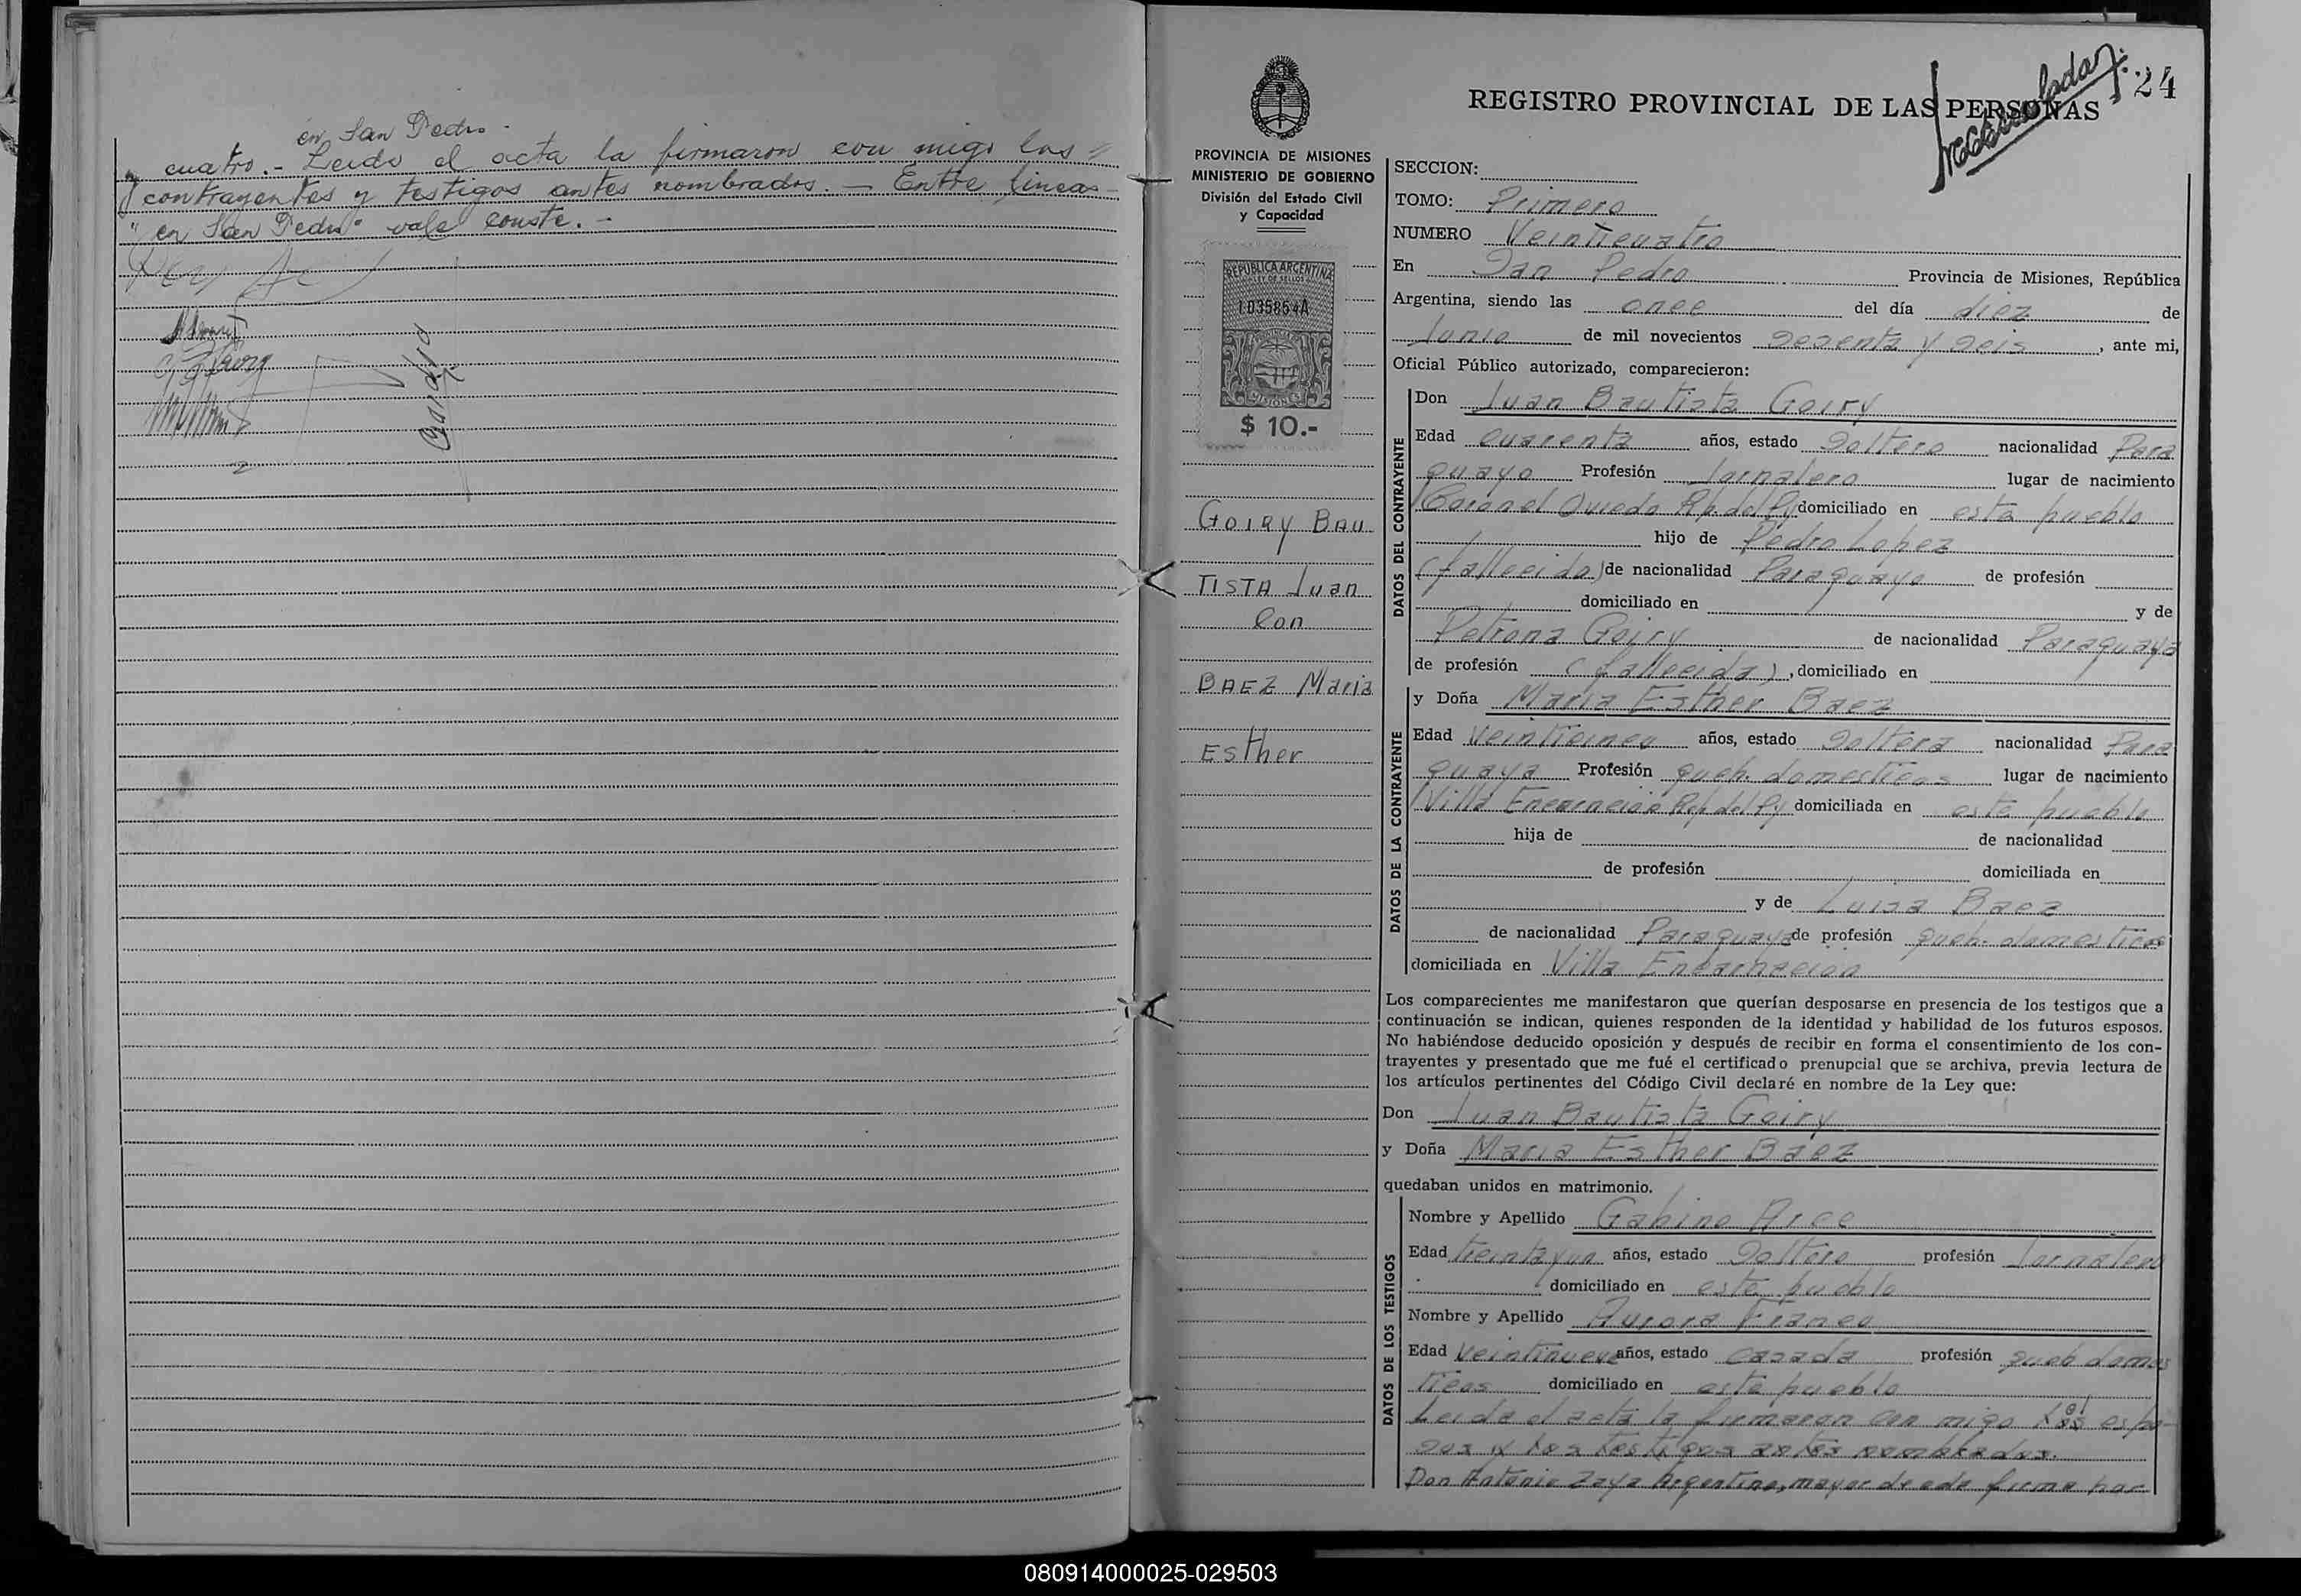 en San Pedro.
cuatro.- Leido el acta la firmaron con migo los
contrayentes y testigos antes nombrados. - Entre lineas
"en San Pedro" vale conste. -
24
REGISTRO PROVINCIAL DE LAS PERSONAS
PROVINCIA DE MISIONES
MINISTERIO DE GOBIERNO
División del Estado Civil
y Capacidad
REPUBLICA ARGENTINA
LEY DE SELLOS
1035854A
MISIONES
$ 10.-
GOIRY BAU
TISTA Juan
Con
BAEZ Maria
Esther
SECCION:
TOMO: Primero
NUMERO Veinticuatro
En San Pedro Provincia de Misiones, República
Argentina, siendo las once del día diez de
Junio de mil novecientos sesenta y seis, ante mi,
Oficial Público autorizado, comparecieron:
DATOS DEL CONTRAYENTE
Don Juan Bautista Goiry
Edad cuarenta años, estado soltero nacionalidad Para
guayo Profesión Jornalero lugar de nacimiento
Coronel Oviedo Rp. del Py domiciliado en este pueblo
hijo de Pedro Lopez
(fallecido) de nacionalidad Paraguayo de profesión
domiciliado en y de
Petrona Goiry de nacionalidad Paraguaya
de profesión (fallecida), domiciliado en
DATOS DE LA CONTRAYENTE
y Doña Maria Esther Baez
Edad veinticinco años, estado soltera nacionalidad Para
guaya Profesión queh. domesticos lugar de nacimiento
Villa Encarnación Rep. del Py domiciliada en este pueblo
hija de de nacionalidad
de profesión domiciliada en
y de Luisa Baez
de nacionalidad Paraguaya de profesión queh. domesticos
domiciliada en Villa Encarnacion
Los comparecientes me manifestaron que querían desposarse en presencia de los testigos que a
continuación se indican, quienes responden de la identidad y habilidad de los futuros esposos.
No habiéndose deducido oposición y después de recibir en forma el consentimiento de los con-
trayentes y presentado que me fué el certificado prenupcial que se archiva, previa lectura de
los artículos pertinentes del Código Civil declaré en nombre de la Ley que:
Don Juan Bautista Goiry
y Doña Maria Esther Baez
quedaban unidos en matrimonio.
DATOS DE LOS TESTIGOS
Nombre y Apellido Gabino Arce
Edad treinta y un años, estado soltero profesión Jornalero
domiciliado en este pueblo
Nombre y Apellido Aurora Franco
Edad veintinueve años, estado casada profesión queh domes
ticos domiciliado en este pueblo
Leida el acta la firmaron con migo los espo-
sos y los testigos antes nombrados.
Don Antonio Zaya Argentino, mayor de eda firma por
080914000025-029503